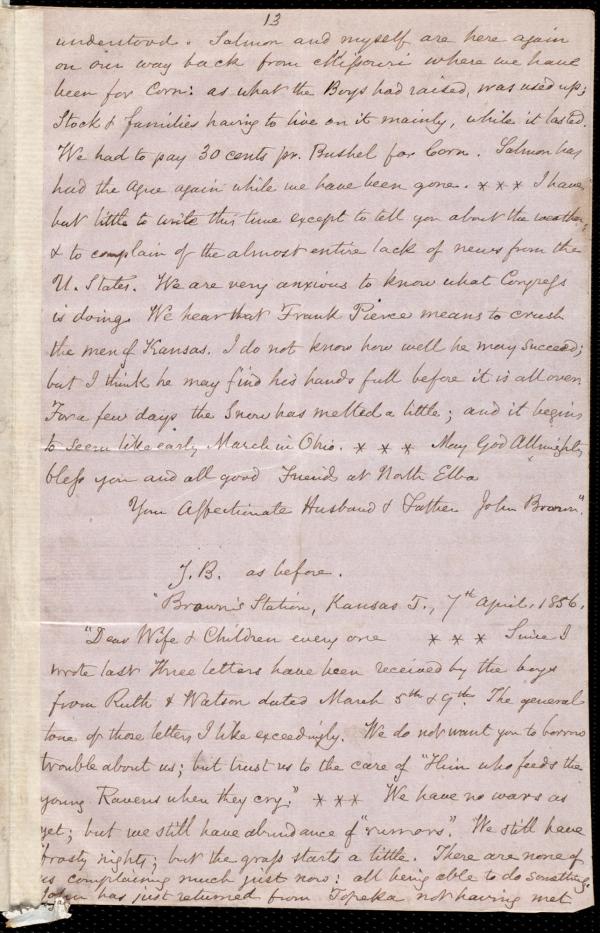 13
understood. Salmon and myself are here again
on our way back from Missouri where we have
been for Corn: as what the Boys had raised, was used up;
Stock & families having to live on it mainly, while it lasted.
We had to pay 30 cents pr. Bushel for Corn. Salmon has
had the Ague again while we have been gone. * * * I have
but little to write this time except to tell you about the weather,
& to complain of the almost entire lack of news from the
U. States. We are very anxious to know what Congress
is doing. We hear that Frank Pierce means to crush
the men of Kansas. I do not know how well he may succeed;
but I think he may find his hands full before it is all over.
For a few days the Snow has melted a little; and it begins
to seem like early March in Ohio. * * * May God Allmighty
bless you and all good Friends at North Elba
Your Affectionate Husband & Father John Brown".
J. B. as before.
"Brown's Station, Kansas T., 7th April, 1856.
"Dear Wife & Children every one * * * Since I
wrote last three letters have been received by the boys
from Ruth & Watson dated March 5th & 9th. The general
tone of those letters I like exceedingly. We do not want you to borrow
trouble about us; but trust us to the care of "Him who feeds the
young Ravens when they cry." * * * We have no wars as
yet; but we still have abundance of "rumors". We still have
frosty nights; but the grass starts a little. There are none of
us complaining much just now: all being able to do something.
John has just returned from Topeka not having met